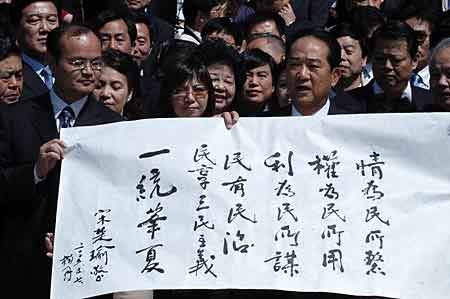 情為民所繫
權為民所用
利為民所謀
民有民治
民享三民主義
一統華夏
宋楚瑜敬